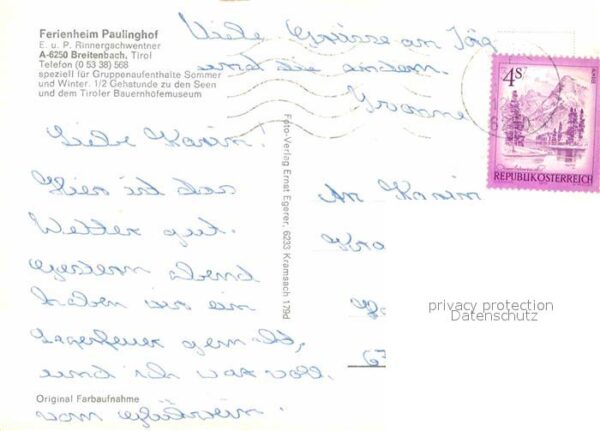 Ferienheim Paulinghof
E. u. P. Rinnergschwentner
A-6250 Breitenbach, Tirol
Telefon (0 53 38) 568
speziell für Gruppenaufenthalte Sommer
und Winter. 1/2 Gehstunde zu den Seen
und dem Tiroler Bauernhofmuseum
Viele Grüsse an Jörg
und die andern.
Yvonne
4S
REPUBLIK ÖSTERREICH
Liebe Karin!
Hier ist das
Wetter gut.
Gestern abend
haben wir ein
Lagerfeuer gemacht,
und ich war voll.
vom Glühwein.
Foto-Verlag Ernst Egerer, 6233 Kramsach 179d
An Karin
Kra
privacy protection
Datenschutz
Original Farbaufnahme